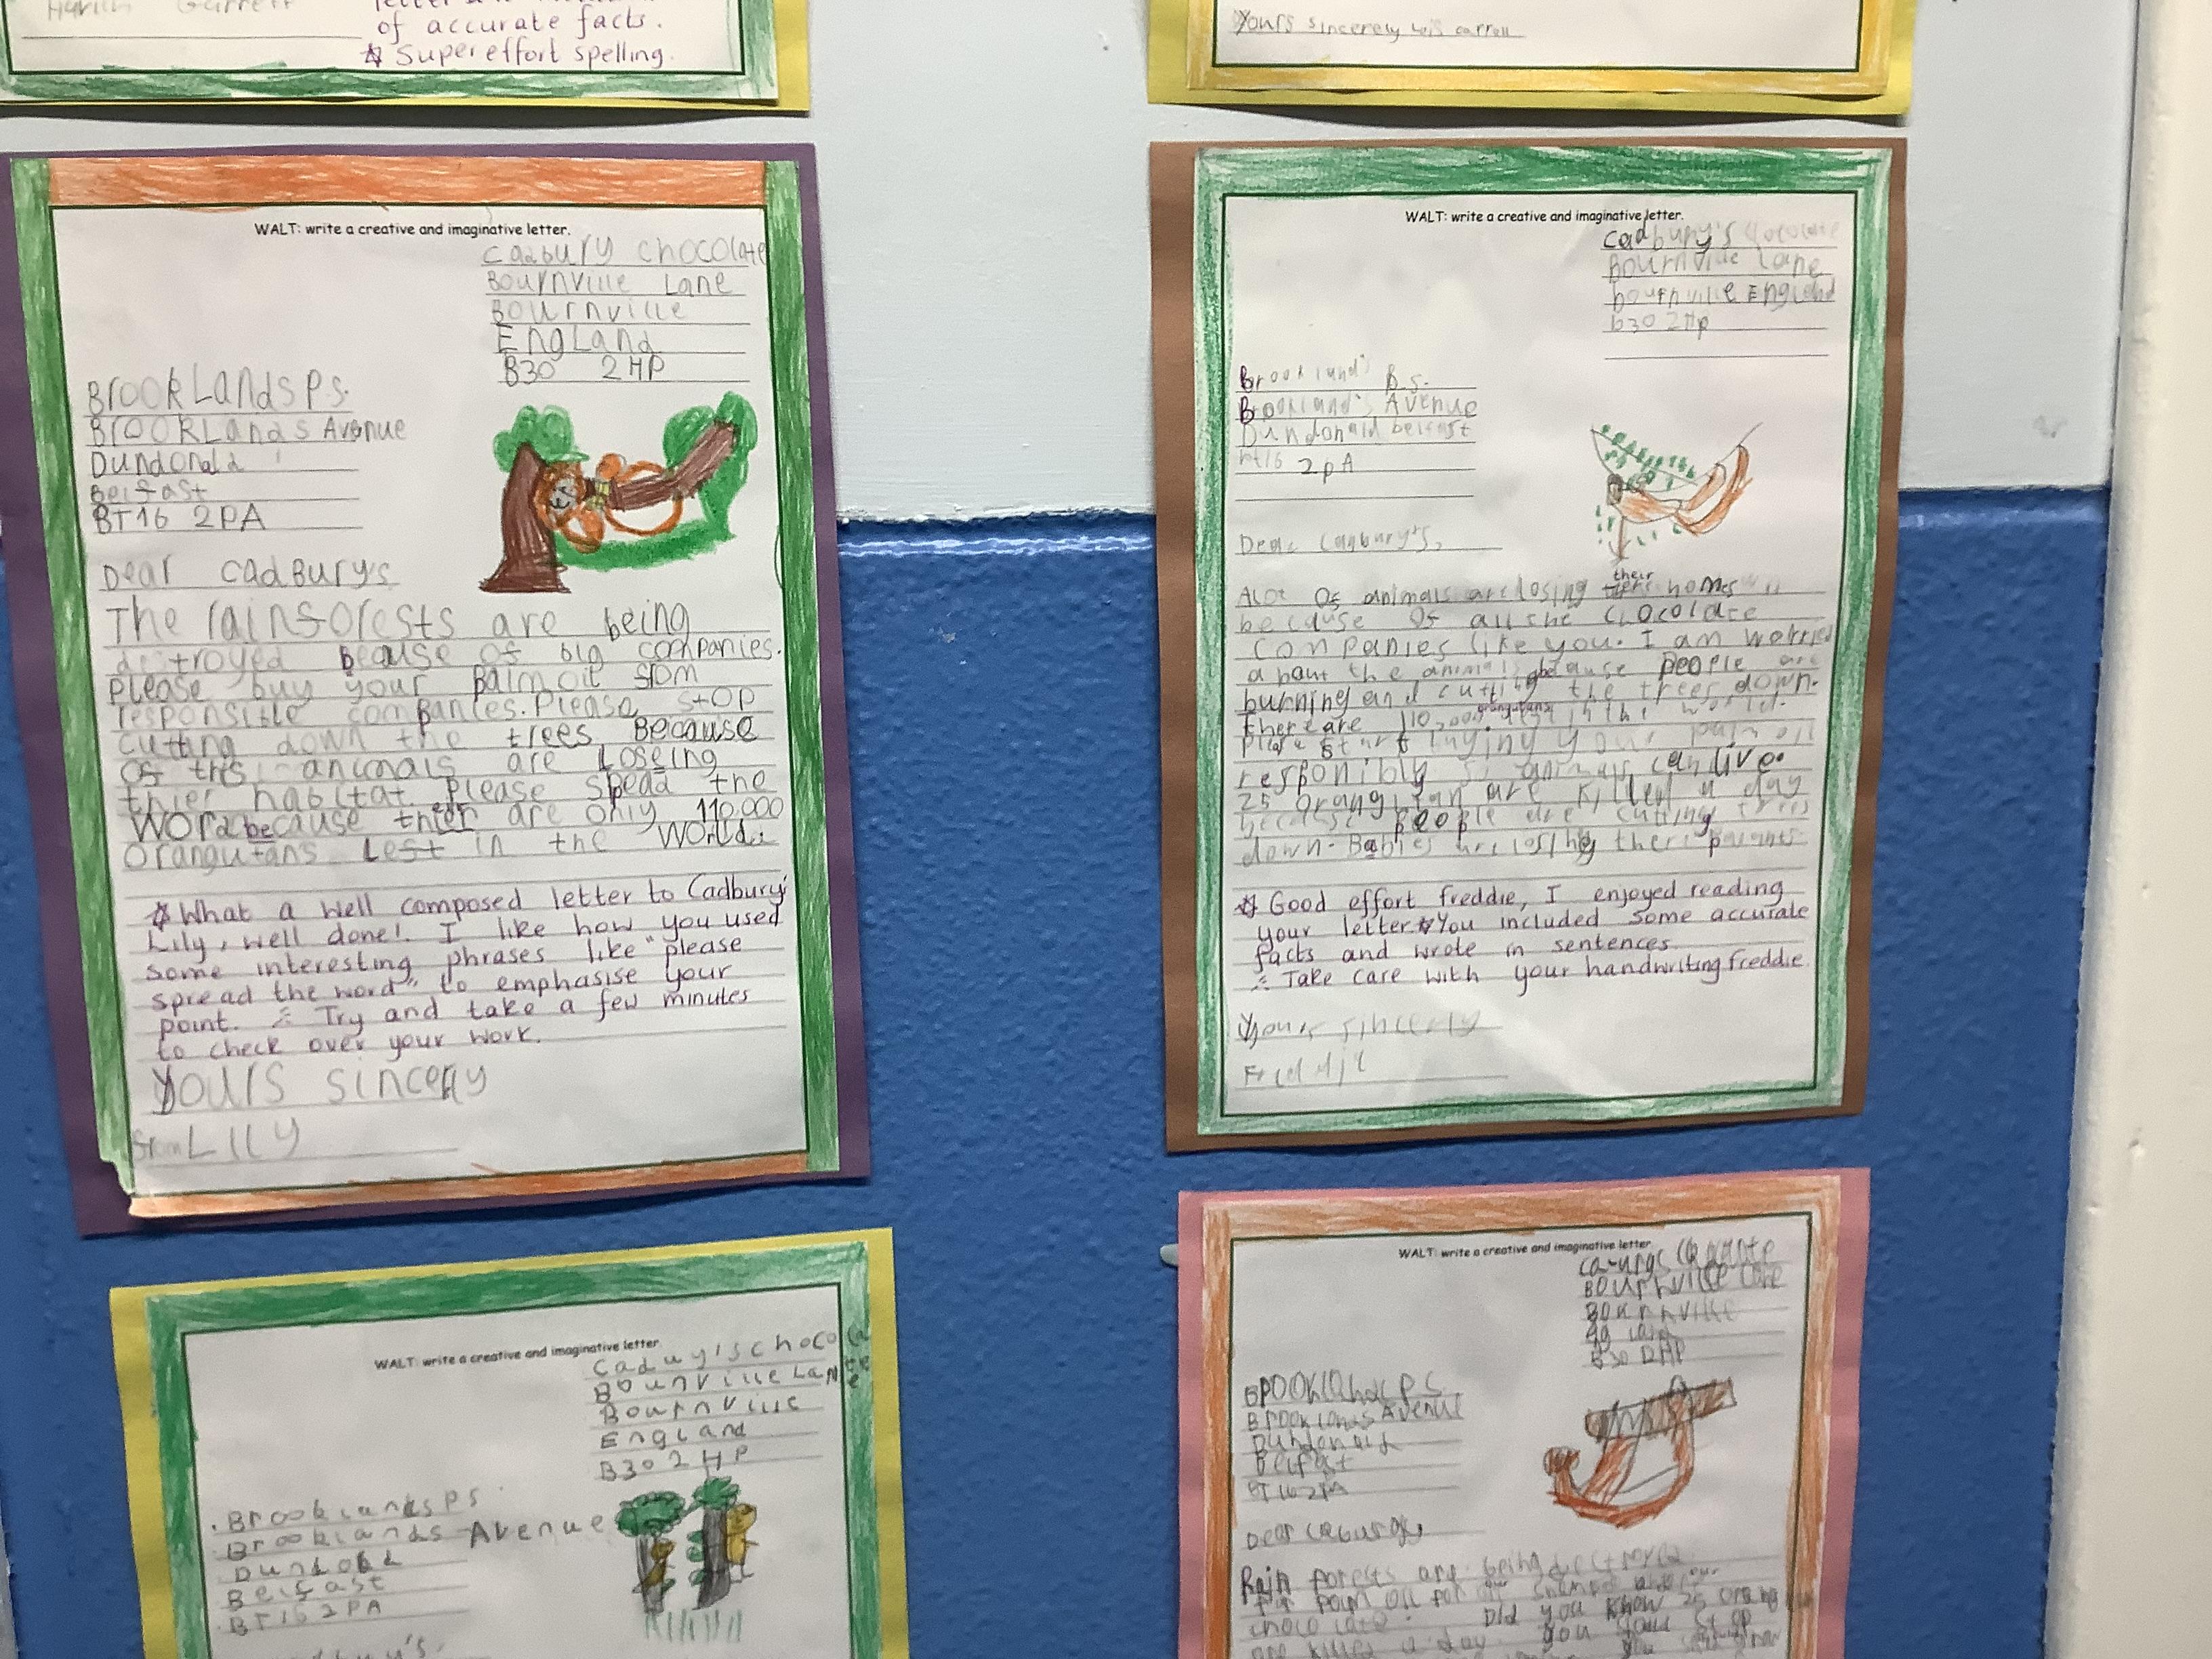 Harish Garrett
letter
of accurate facts.
Super effort spelling.
Yours sincerely
WALT: write a creative and imaginative letter.
Cadbury chocolate
Bournville Lane
Bournville
England
B30 2HP
BrookLands Ps.
BrookLands Avenue
Dundonald
Belfast
BT16 2PA
Dear CadBury's
The rainforests are being
destroyed beause of big companies.
Please buy your palm oil from
responsible companies. Please stop
cutting down the trees Because
of this animals are Loseing
thier habitat. Please spead the
word because thier are only 110.000
orangutans Left in the World.
What a well composed letter to Cadbury's
Lily, well done! I like how you used
some interesting phrases like "please
spread the word" to emphasise your
point. Try and take a few minutes
to check over your work.
Yours sincerly
from Lily
WALT: write a creative and imaginative letter.
Cadbury's
Bournville Lane
bournville England
b30 2Hp
Brookland's
Brookland's Avenue
Dundonald belfast
bt16 2pA
Dear
Alot of animals are losing their homes
because of all the chocolate
companies like you. I am worried
about the animals because people are
burning and cutting the trees down.
there are 110,000 orangutans in the world.
Please start buying your palm oil
responibly so animals can live.
25 orangutan are killed a day
because people are cutting trees
down. Babies are losing their parants
Good effort Freddie, I enjoyed reading
your letter. You included some accurate
facts and wrote in sentences.
Take care with your handwriting Freddie.
Yours sincerly
Freddie
WALT: write a creative and imaginative letter.
Caduy's chocolate
Bounville Lane
Bournville
England
B30 2HP
Brooklands PS
Brooklands Avenue
Belfast
BT16 2PA
WALT: write a creative and imaginative letter.
Bournville Lane
Bournville
B30 2HP
Brooklands Avenue
Dundonald
Belfast
BT16 2PA
Dear
Rain forests are being
for palm oil for our
chocolate. Did you know 25
are killed a day. You stop